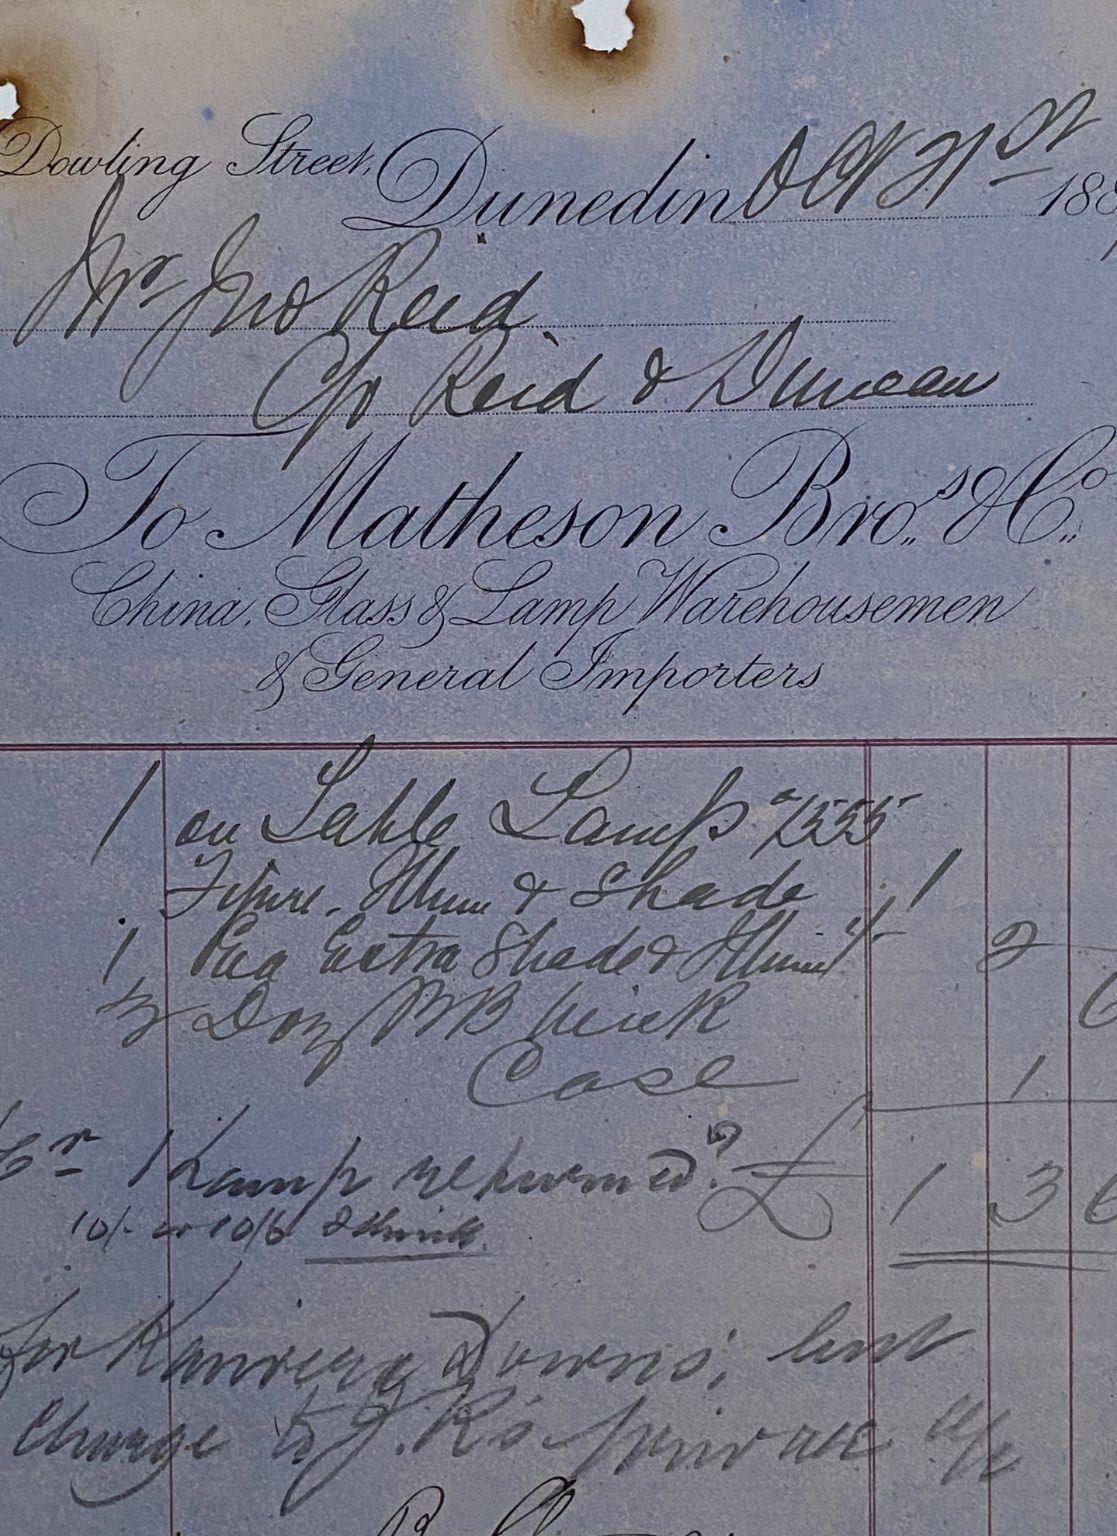 Dowling Street, Dunedin Oct 21st 188
Mr Jno Reid
C/o Reid & Duncan
To Matheson Bros. & Co.
China, Glass & Lamp Warehousemen
& General Importers
1 on Table Lamp 7555
Figure, & Shade 1
1 Extra Shade & 2
½ Doz BB Wick 6
Case 1
Cr 1 Lamp returned? £ 1 3 6
10/- or 10/6 I think
for Downs, but
charge to J. R's private a/c